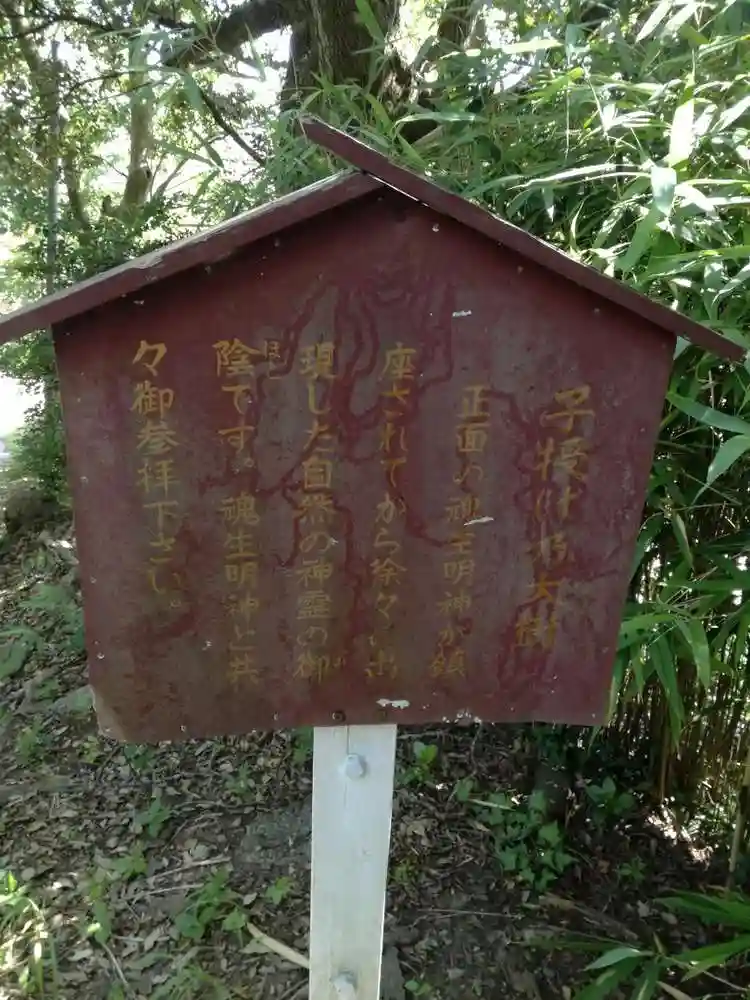 子授け乃大樹
正面の魂生明神が鎮
座されてから徐々に出
現した自然の神霊の御
陰です。魂生明神と共
ほと
々御参拝下さい。